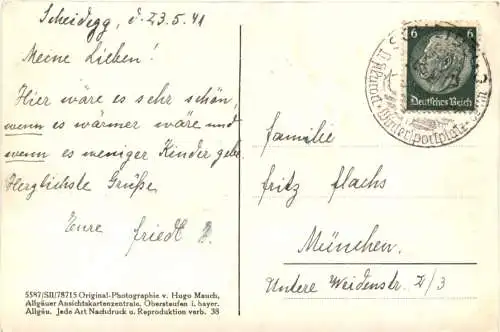 Scheidegg, d. 23.5.41
Meine Lieben!
Hier wäre es sehr schön,
wenn es wärmer wäre und
wenn es weniger Kinder gebe.
Herzlichste Grüße
Eure Friedl
5587/SII/78715 Original-Photographie v. Hugo Mauch,
Allgäuer Ansichtskartenzentrale, Oberstaufen i. bayer.
Allgäu. Jede Art Nachdruck u. Reproduktion verb. 38
6 6
Deutsches Reich
Wintersportplatz
Familie
Fritz Flachs
München.
Untere Weidenstr. 2/3